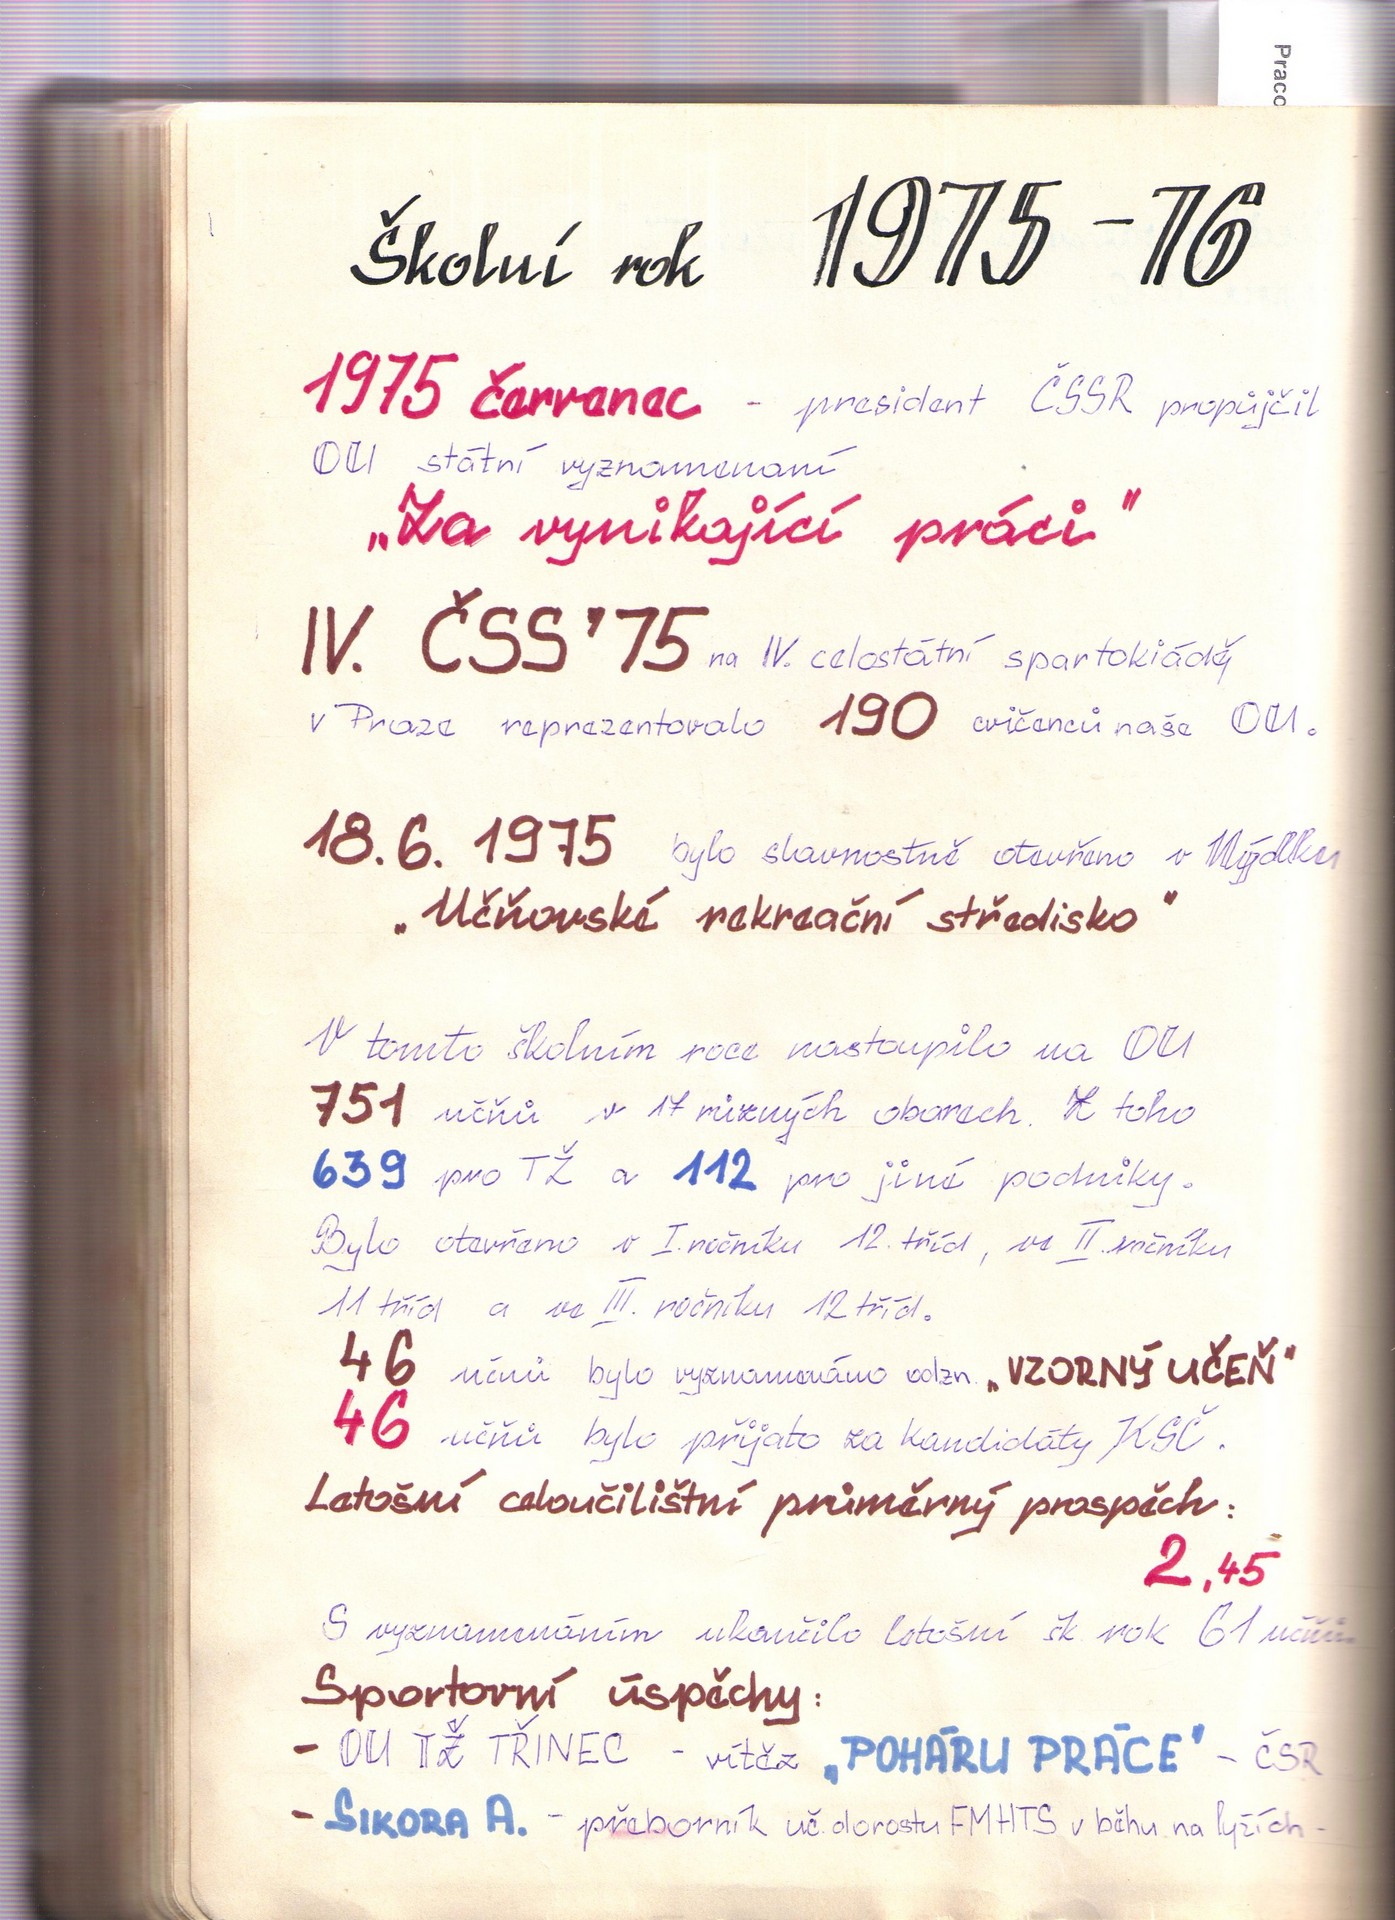 Praco
Školní rok 1975-76
1975 červenec - president ČSSR propůjčil
OU státní vyznamenaní
„Za vynikající práci"
IV. ČSS '75 na IV. celostátní spartakiádě
v Praze reprezentovalo 190 cvičenců naše OU.
18.6. 1975 bylo slavnostně otevřeno v
„Učňovské rekreační středisko"
V tomto školním roce nastoupilo na OU
751 učňů v 17 různých oborech. Z toho
639 pro TŽ a 112 pro jiné podniky.
Bylo otevřeno v I. ročníku 12. tříd, ve II. ročníku
11 tříd a ve III. ročníku 12 tříd.
46 učňů bylo vyznamenáno odzn. „VZORNÝ UČEŇ"
46 učňů bylo přijato za kandidáty KSČ.
Letošní celoučilištní průměrný prospěch:
2,45
S vyznamenáním ukončilo letošní šk. rok 61 učňů.
Sportovní úspěchy:
- OU TŽ TŘINEC - vítěz „POHÁRU PRÁCE" - ČSR
- SIKORA A. - přeborník uč. dorostu FMHTS v běhu na lyžích -